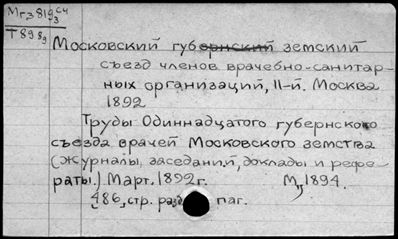 Мгз 819 сч 3
Т 89 89
Московский губернский земский
съезд членов врачебно-санитар-
ных организаций, II-й. Москва
1892
Труды Одиннадцатого губернского
съезда врачей Московского земства
(журналы, заседаний, доклады и рефе
раты.) Март. 1892 г. М., 1894.
486 стр. разд паг.